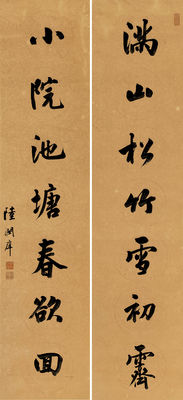 满山松竹雪初霽
小院池塘春欲回
陸潤庠